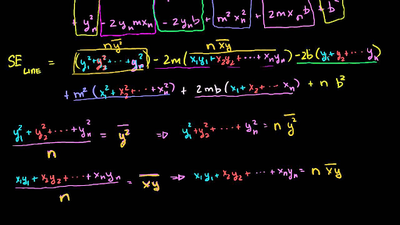 + y_n² - 2y_n mx_n - 2y_n b + m²x_n² + 2mx_n b + b²
n\overline{y²} n\overline{xy}
SE_LINE = (y₁²+y₂²+···+y_n²) - 2m(x₁y₁+x₂y₂+···+x_ny_n) - 2b(y₁+y₂+···y_n)
+m²(x₁²+x₂²+···+x_n²) + 2mb(x₁+x₂+···x_n) + n b²
y₁²+y₂²+···+y_n² / n = \overline{y²} ⇒ y₁²+y₂²+···+y_n² = n\overline{y²}
x₁y₁+x₂y₂+···+x_ny_n / n = \overline{xy} ⇒ x₁y₁+x₂y₂+···+x_ny_n = n\overline{xy}